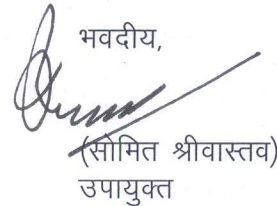 भवदीय,
(सोमित श्रीवास्तव)
उपायुक्त